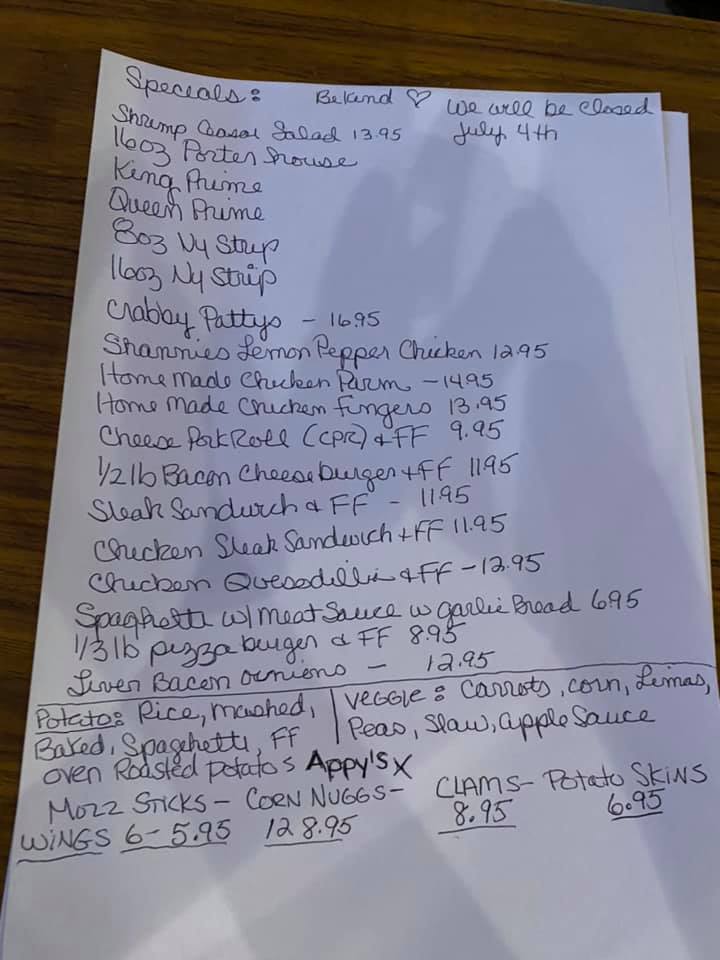 Specials: Be kind ♡ We will be closed
July 4th
Shrimp Ceasar Salad 13.95
16oz Porterhouse
King Prime
Queen Prime
8oz Ny Strip
16oz Ny Strip
Crabby Pattys - 16.95
Shannies Lemon Pepper Chicken 12.95
Home Made Chicken Parm - 14.95
Home Made Chicken Fingers 13.95
Cheese Pork Roll (CPR) & FF 9.95
1/2 lb Bacon Cheese burger + FF 11.95
Steak Sandwich & FF - 11.95
Chicken Steak Sandwich + FF 11.95
Chicken Quesadilla & FF - 12.95
Spaghetti w/ Meat Sauce w garlic Bread 6.95
1/3 lb pizza burger & FF 8.95
Liver Bacon onnions - 12.95
Potato: Rice, mashed,
Baked, Spagehetti, FF
oven Roasted potatos
Veggie: Carrots, corn, Limas,
Peas, Slaw, apple Sauce
Appy's X
Mozz Sticks - Corn Nuggs - Clams - Potato Skins
8.95 6.95
Wings 6 - 5.95 12 8.95